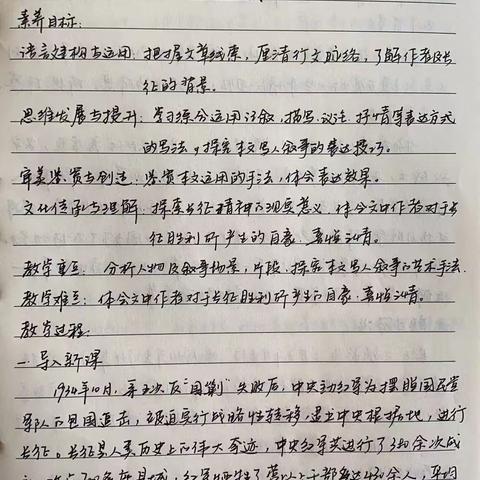 素养目标:
语言建构与运用: 把握文章线索, 厘清行文脉络, 了解作者及长
征的背景。
思维发展与提升: 学习综合运用记叙、描写、议论、抒情等表达方式
的写法, 探究本文写人叙事的表达技巧。
审美鉴赏与创造: 鉴赏本文运用的手法, 体会表达效果。
文化传承与理解: 探索长征精神的现实意义, 体会文中作者对于长
征胜利所产生的自豪、喜悦之情。
教学重点: 分析人物及叙事场景, 片段, 探究本文写人叙事的艺术手法.
教学难点: 体会文中作者对于长征胜利所产生的自豪、喜悦之情。
教学过程:
一. 导入新课
1934年10月, 第五次反"围剿"失败后, 中央主力红军为摆脱国民党
军队的包围追击, 被迫实行战略性转移, 退出中央根据地, 进行
长征。长征是人类历史上的伟大奇迹, 中央红军共进行了380余次战